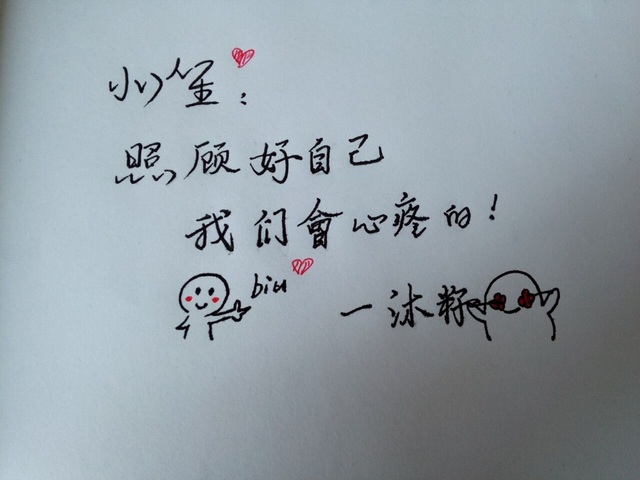 小笙：
照顾好自己
我们會心疼的！
biu
—沐籽